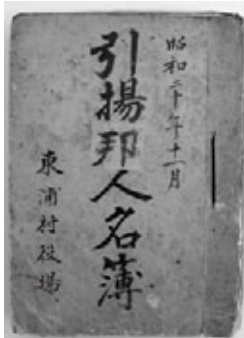 昭和二十年十一月
引揚邦人名簿
東浦村役場